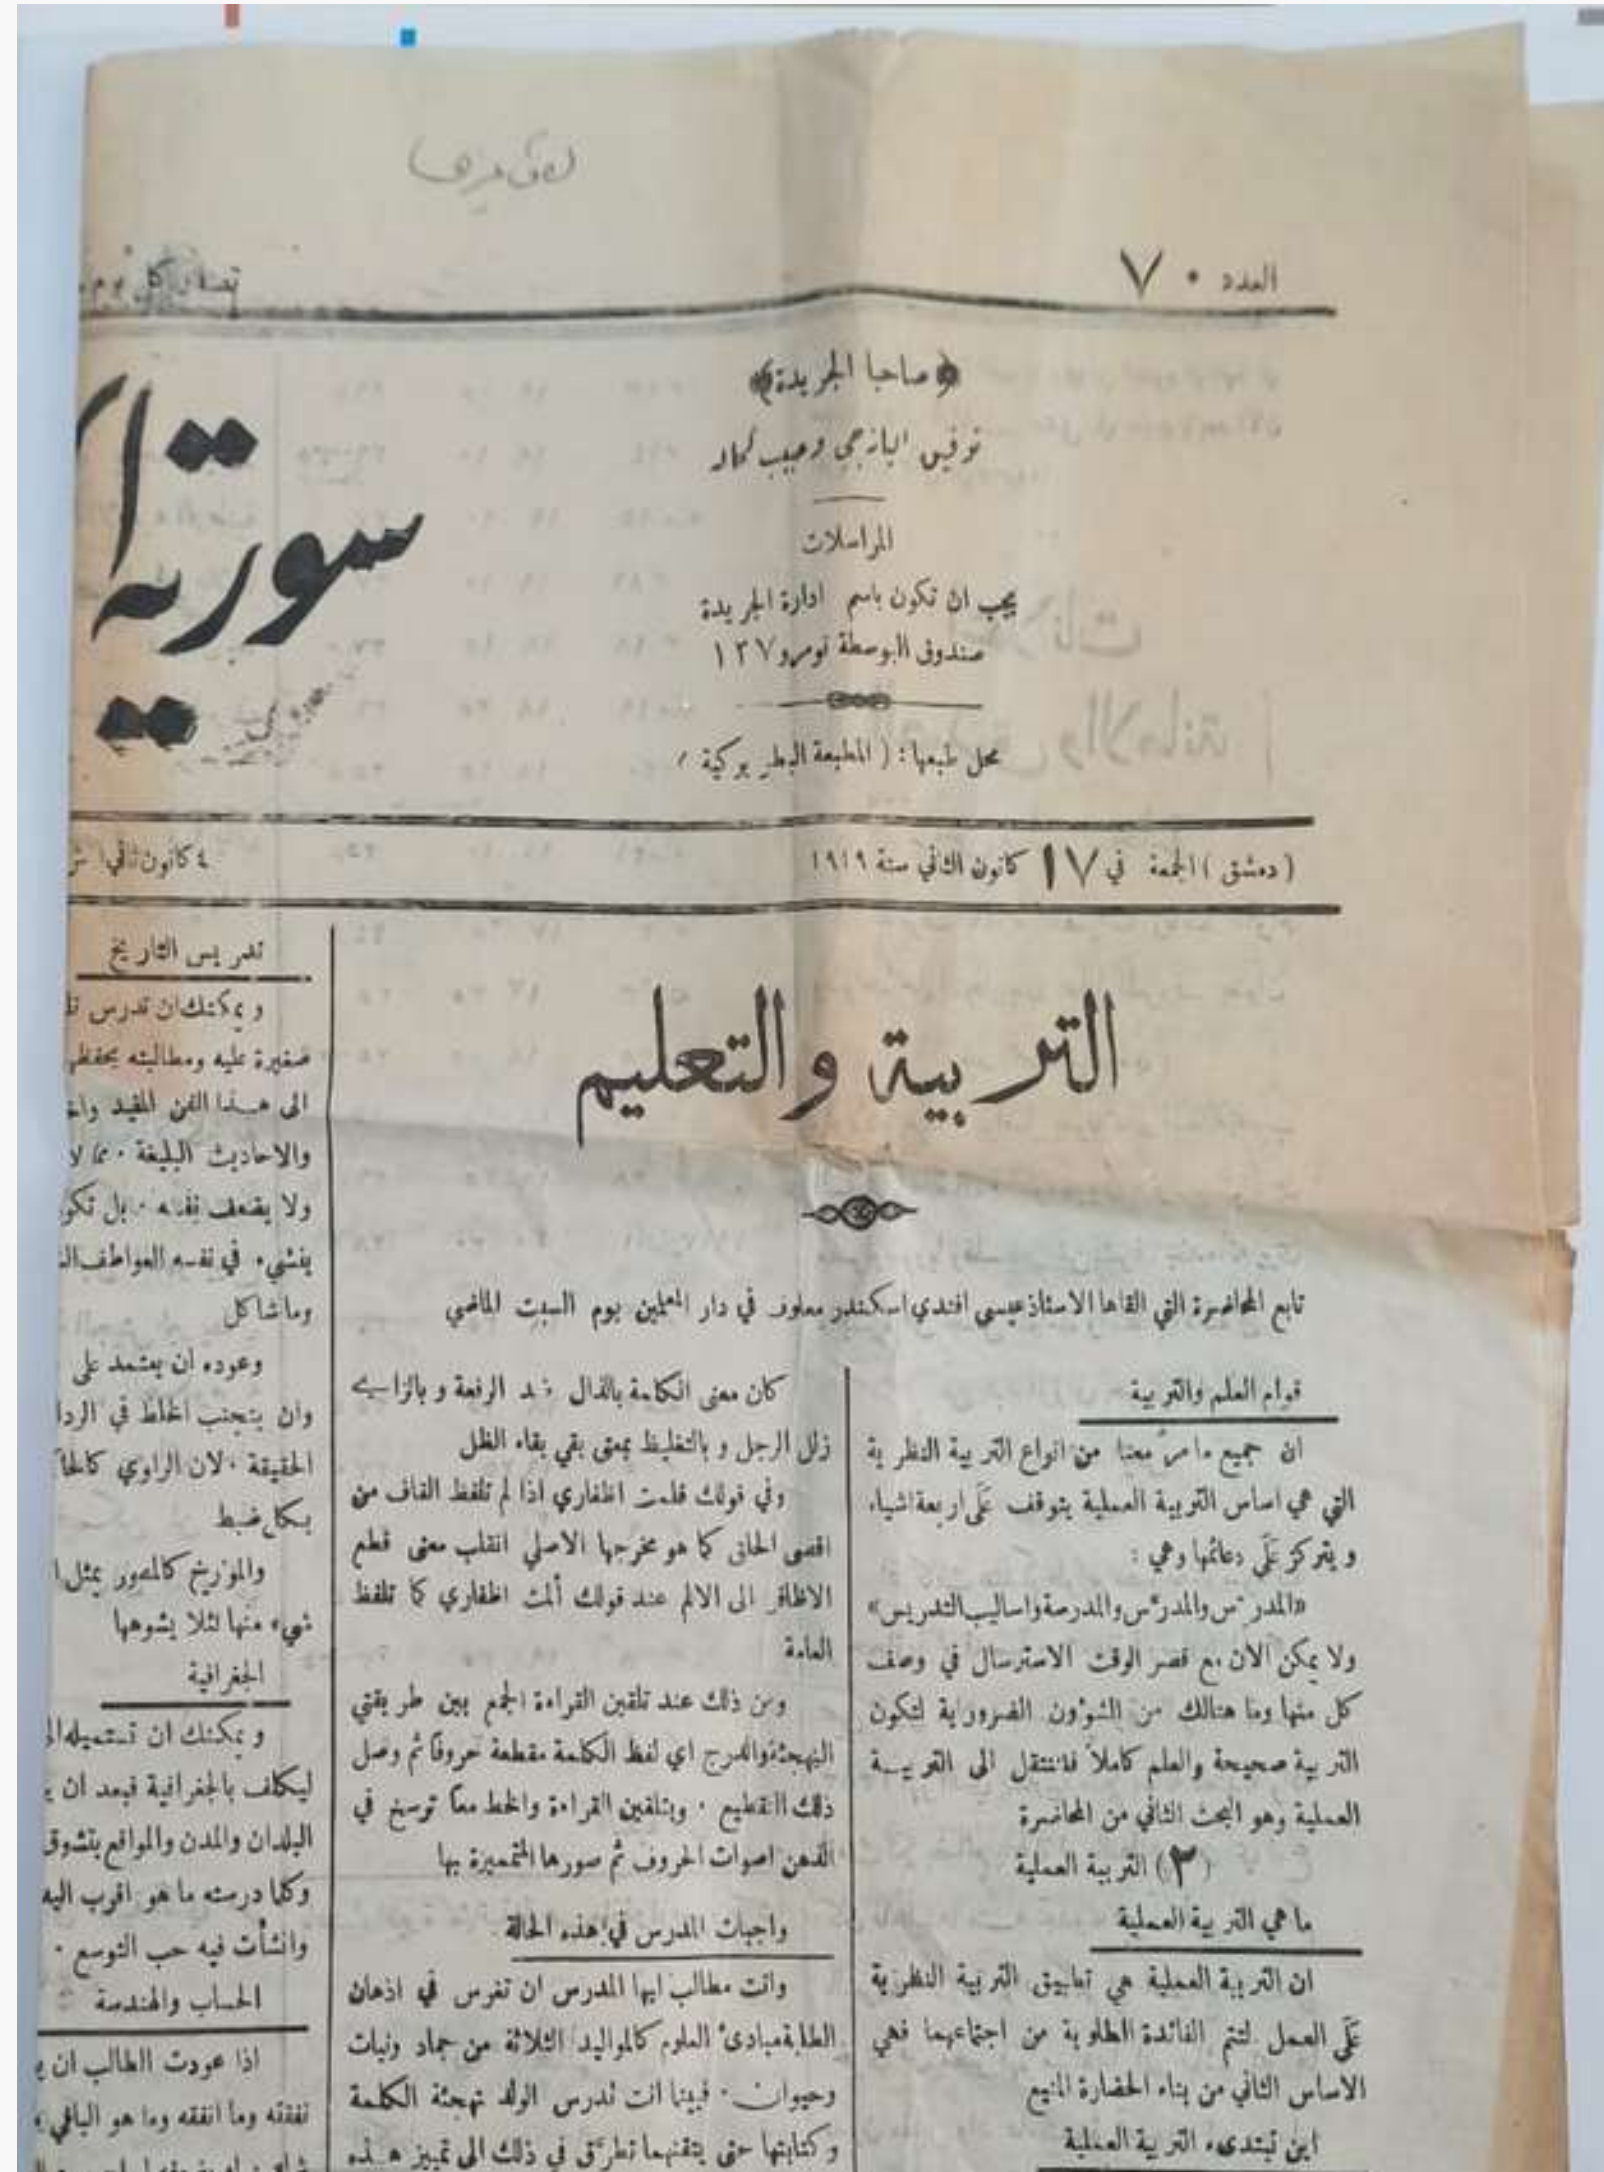 العدد ٧٠
تصدر كل يوم
﴿صاحبا الجريدة﴾
توفيق اليازجي وحبيب كحاله
المراسلات
يجب ان تكون باسم ادارة الجريدة
صندوق البوسطة نومرو ١٣٧
محل طبعها: (المطبعة البطريركية)
سورية
(دمشق) الجمعة في ١٧ كانون الثاني سنة ١٩١٩
٤ كانون ثاني ش
التربية والتعليم
تابع المحاضرة التي القاها الاستاذ عيسى افندي اسكندر معلوف في دار المعلمين يوم السبت الماضي
قوام العلم والتربية
ان جميع ما مرَّ معنا من انواع التربية النظرية
التي هي اساس التربية العملية يتوقف عَلَى اربعة اشياء
ويتركز عَلَى دعائمها وهي:
«المدرّس والمدرَّس والمدرسة واساليب التدريس»
ولا يمكن الان مع قصر الوقت الاسترسال في وصف
كل منها وما هنالك من الشؤون الضرورية لتكون
التربية صحيحة والعلم كاملاً فلننتقل الى التربيــة
العملية وهو البحث الثاني من المحاضرة
(٣) التربية العملية
ما هي التربية العملية
ان التربية العملية هي تطبيق التربية النظرية
عَلَى العمل لتتم الفائدة المطلوبة من اجتماعهما فهي
الاساس الثاني من بناء الحضارة المنيع
اين تبتدىء التربية العملية
كان معنى الكلمة بالذال ضد الرفعة وبالزاي
زلل الرجل وبالتغليظ بمعنى بقي بقاء الظل
وفي قولك قلمت اظفاري اذا لم تلفظ القاف من
اقصى الحلق كما هو مخرجها الاصلي انقلب معنى قطع
الاظافر الى الالم عند قولك ألمت اظفاري كما تلفظ
العامة
ومن ذلك عند تلقين القراءة الجمع بين طريقتي
التهجئة والدرج اي لفظ الكلمة مقطعة حروفاً ثم وصل
ذلك التقطيع ۰ وبتلقين القراءة والخط معاً ترسخ في
الذهن اصوات الحروف ثم صورها المتميزة بها
واجبات المدرس في هذه الحالة
وانت مطالب ايها المدرس ان تغرس في اذهان
الطلبة مبادئ العلوم كالمواليد الثلاثة من جماد ونبات
وحيوان ۰ فبينما انت تدرس الولد تهجئة الكلمة
وكتابتها حتى يتقنهما تطرّق في ذلك الى تمييز هــذه
تدريس التاريخ
ويمكنك ان تدرس
صغيرة عليه ومطالبته بحفظها
الى هــذا الفن المفيد
والاحاديث البليغة ۰ مما لا
ولا يضعف نفسه ۰ بل
ينشىء في نفسه العواطف
وما شاكل
وعوده ان يعتمد على
وان يتجنب الخلط في
الحقيقة ۰ لان الراوي
بكل ضبط
والمؤرخ كالمصور يمثل
شيء منها لئلا يشوهها
الجغرافية
ويمكنك ان تستميله
ليكلف بالجغرافية فبعد ان
البلدان والمدن والمواقع بتشوق
وكلما درسته ما هو اقرب اليه
وانشأت فيه حب التوسع ۰
الحساب والهندسة
اذا عودت الطالب ان
نفقته وما انفقه وما هو الباقي